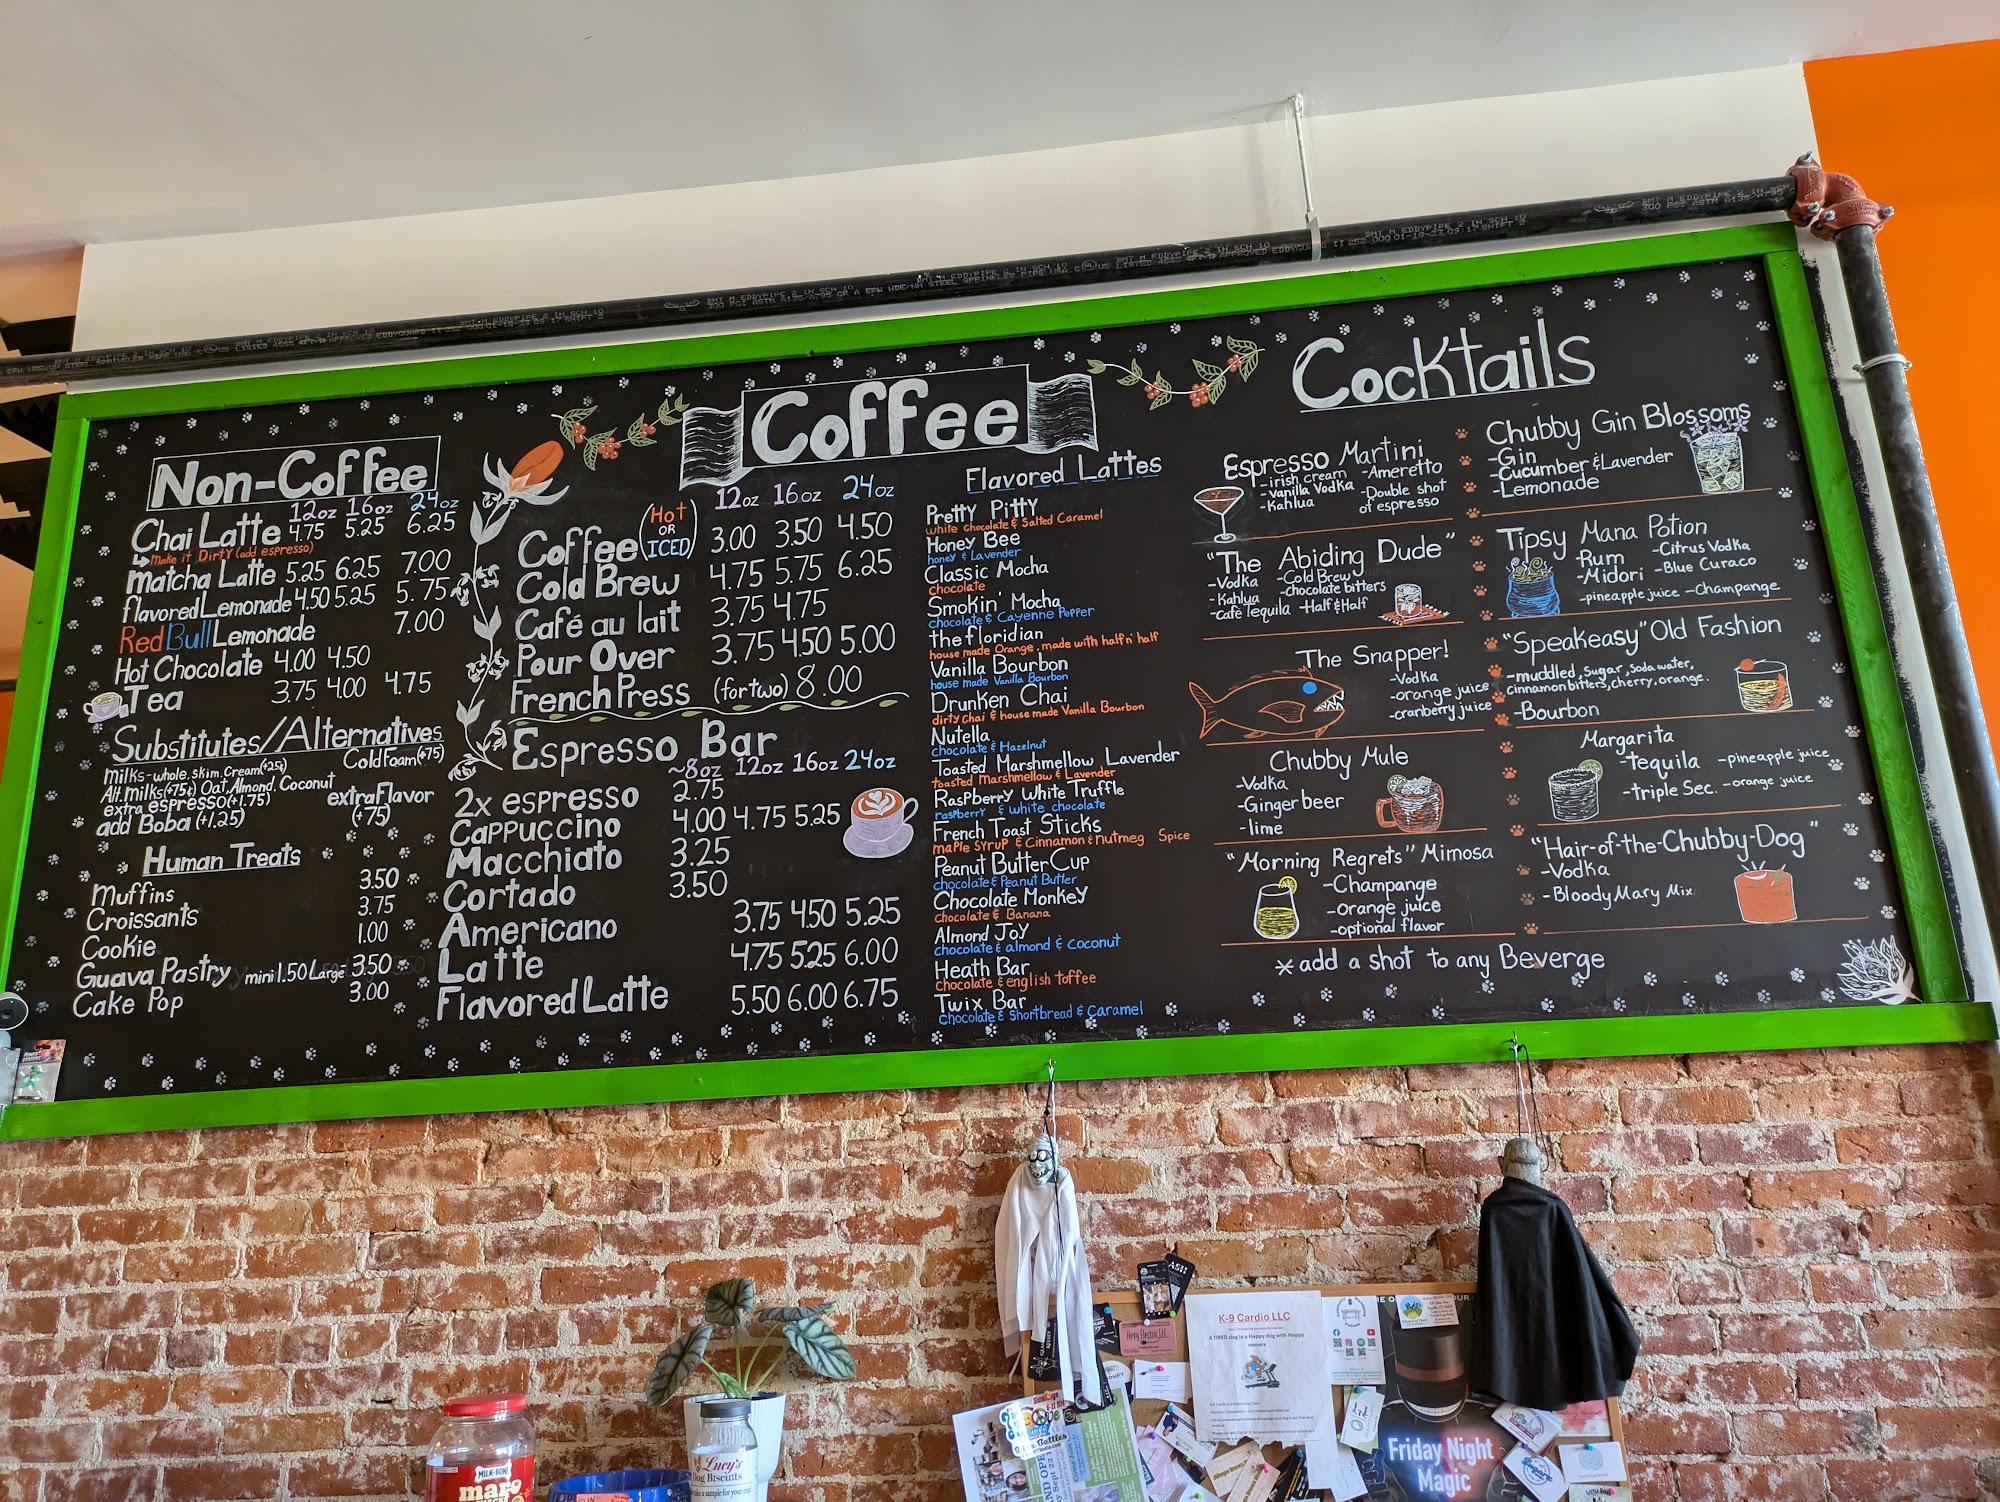 Non-Coffee
12oz 16oz 24oz
Chai Latte 4.75 5.25 6.25
Make it Dirty (add espresso)
matcha Latte 5.25 6.25 7.00
flavored Lemonade 4.50 5.25 5.75
Red Bull Lemonade 7.00
Hot Chocolate 4.00 4.50
Tea 3.75 4.00 4.75
Substitutes/Alternatives
milks-whole, skim, Cream(+25¢) Cold Foam(+75)
Alt. milks(+75¢) Oat, Almond, Coconut
extra espresso(+1.75) extra Flavor
add Boba (+1.25) (+75)
Human Treats
Muffins 3.50
Croissants 3.75
Cookie 1.00
Guava Pastry mini 1.50 Large 3.50
Cake Pop 3.00
Coffee
12oz 16oz 24oz
Coffee (Hot OR ICED) 3.00 3.50 4.50
Cold Brew 4.75 5.75 6.25
Café au lait 3.75 4.75
Pour Over 3.75 4.50 5.00
French Press (for two) 8.00
Espresso Bar
~8oz 12oz 16oz 24oz
2x espresso 2.75
Cappuccino 4.00 4.75 5.25
Macchiato 3.25
Cortado 3.50
Americano 3.75 4.50 5.25
Latte 4.75 5.25 6.00
Flavored Latte 5.50 6.00 6.75
Flavored Lattes
Pretty Pitty
white chocolate & Salted Caramel
Honey Bee
honey & Lavender
Classic Mocha
chocolate
Smokin' Mocha
chocolate & Cayenne Pepper
the floridian
house made Orange, made with half n' half
Vanilla Bourbon
house made Vanilla Bourbon
Drunken Chai
dirty chai & house made Vanilla Bourbon
Nutella
chocolate & Hazelnut
Toasted Marshmellow Lavender
Toasted Marshmellow & Lavender
Raspberry White Truffle
raspberry & white chocolate
French Toast Sticks
maple syrup & Cinnamon & nutmeg Spice
Peanut Butter Cup
chocolate & Peanut Butter
Chocolate Monkey
Chocolate & Banana
Almond Joy
chocolate & almond & coconut
Heath Bar
chocolate & english toffee
Twix Bar
chocolate & Shortbread & Caramel
Cocktails
Espresso Martini
-irish cream -Ameretto
-vanilla Vodka -Double shot
-Kahlua of espresso
"The Abiding Dude"
-Vodka -Cold Brew
-Kahlua -chocolate bitters
-café Tequila -Half & Half
The Snapper!
-Vodka
-orange juice
-cranberry juice
Chubby Mule
-Vodka
-Ginger beer
-lime
"Morning Regrets" Mimosa
-Champange
-orange juice
-optional flavor
Chubby Gin Blossoms
-Gin
-Cucumber & Lavender
-Lemonade
Tipsy Mana Potion
-Rum -Citrus Vodka
-Midori -Blue Curaco
-pineapple juice -Champange
"Speakeasy" Old Fashion
-muddled, sugar, soda water,
cinnamon bitters, cherry, orange.
-Bourbon
Margarita
-tequila -pineapple juice
-triple Sec. -orange juice
"Hair-of-the-Chubby-Dog"
-Vodka
-Bloody Mary Mix
* add a shot to any Beverge
K-9 Cardio LLC
A TIRED dog is a Happy dog with Happy
owners
Friday Night
Magic
MILK-BONE
Lucy's
Dog Biscuits